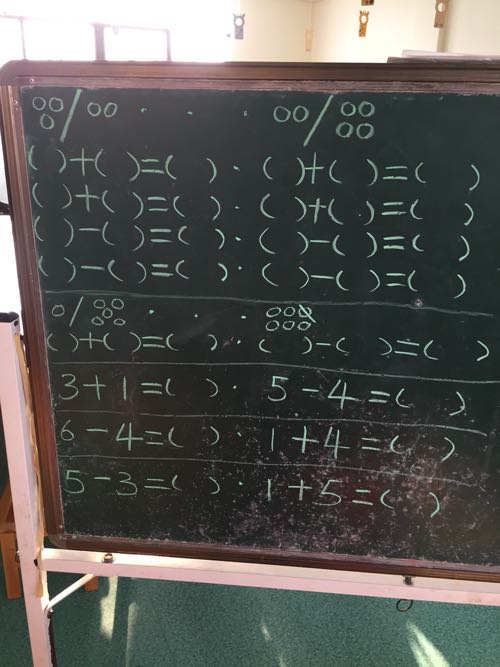 ( )+( )=( ) · ( )+( )=( )
( )+( )=( ) · ( )+( )=( )
( )-( )=( ) · ( )-( )=( )
( )-( )=( ) · ( )-( )=( )
( )+( )=( ) · ( )-( )=( )
3+1=( ) · 5-4=( )
6-4=( ) · 1+4=( )
5-3=( ) · 1+5=( )